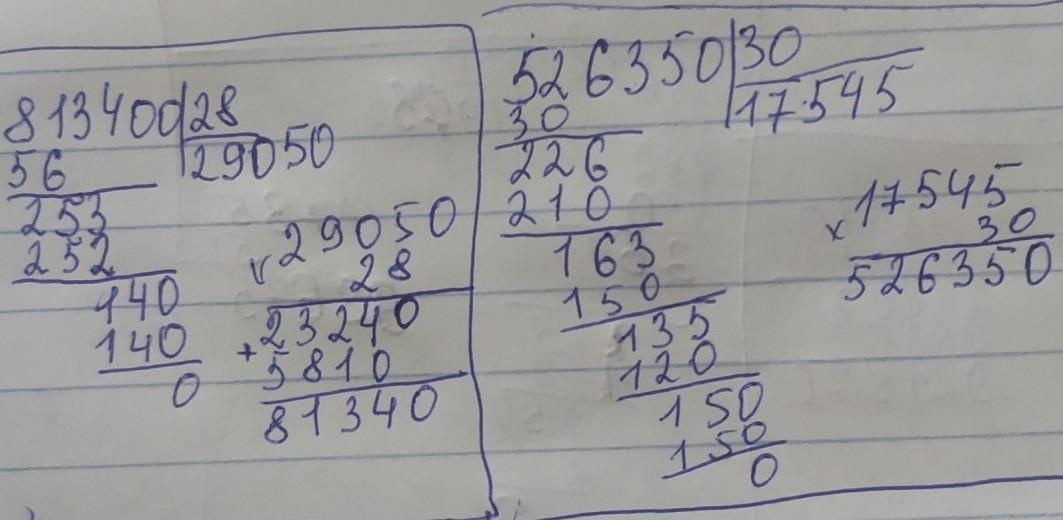 813400 28
56 29050
253
252
140
140
0
× 29050
28
23240
+ 5810
81340
526350 30
30 17545
226
210
163
150
135
120
150
150
0
× 17545
30
526350